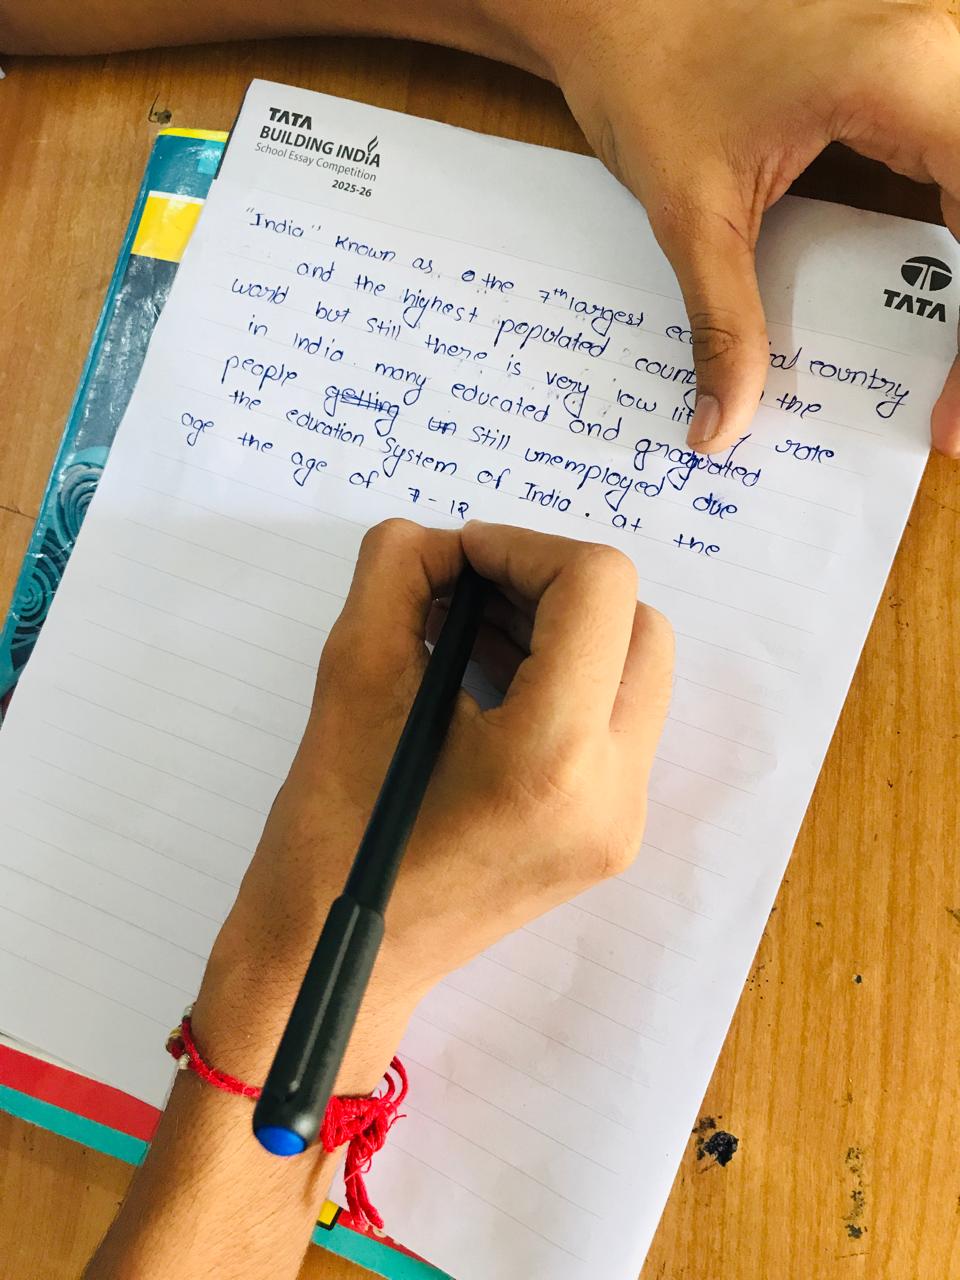 TATA
BUILDING INDIA
School Essay Competition
2025-26
TATA
"India" Known as the 7th largest country
and the highest populated the
world but still there is very low rate
in India. many educated and graguated
people getting un still unemployed due
the education system of India. at the
age the age of 7-12